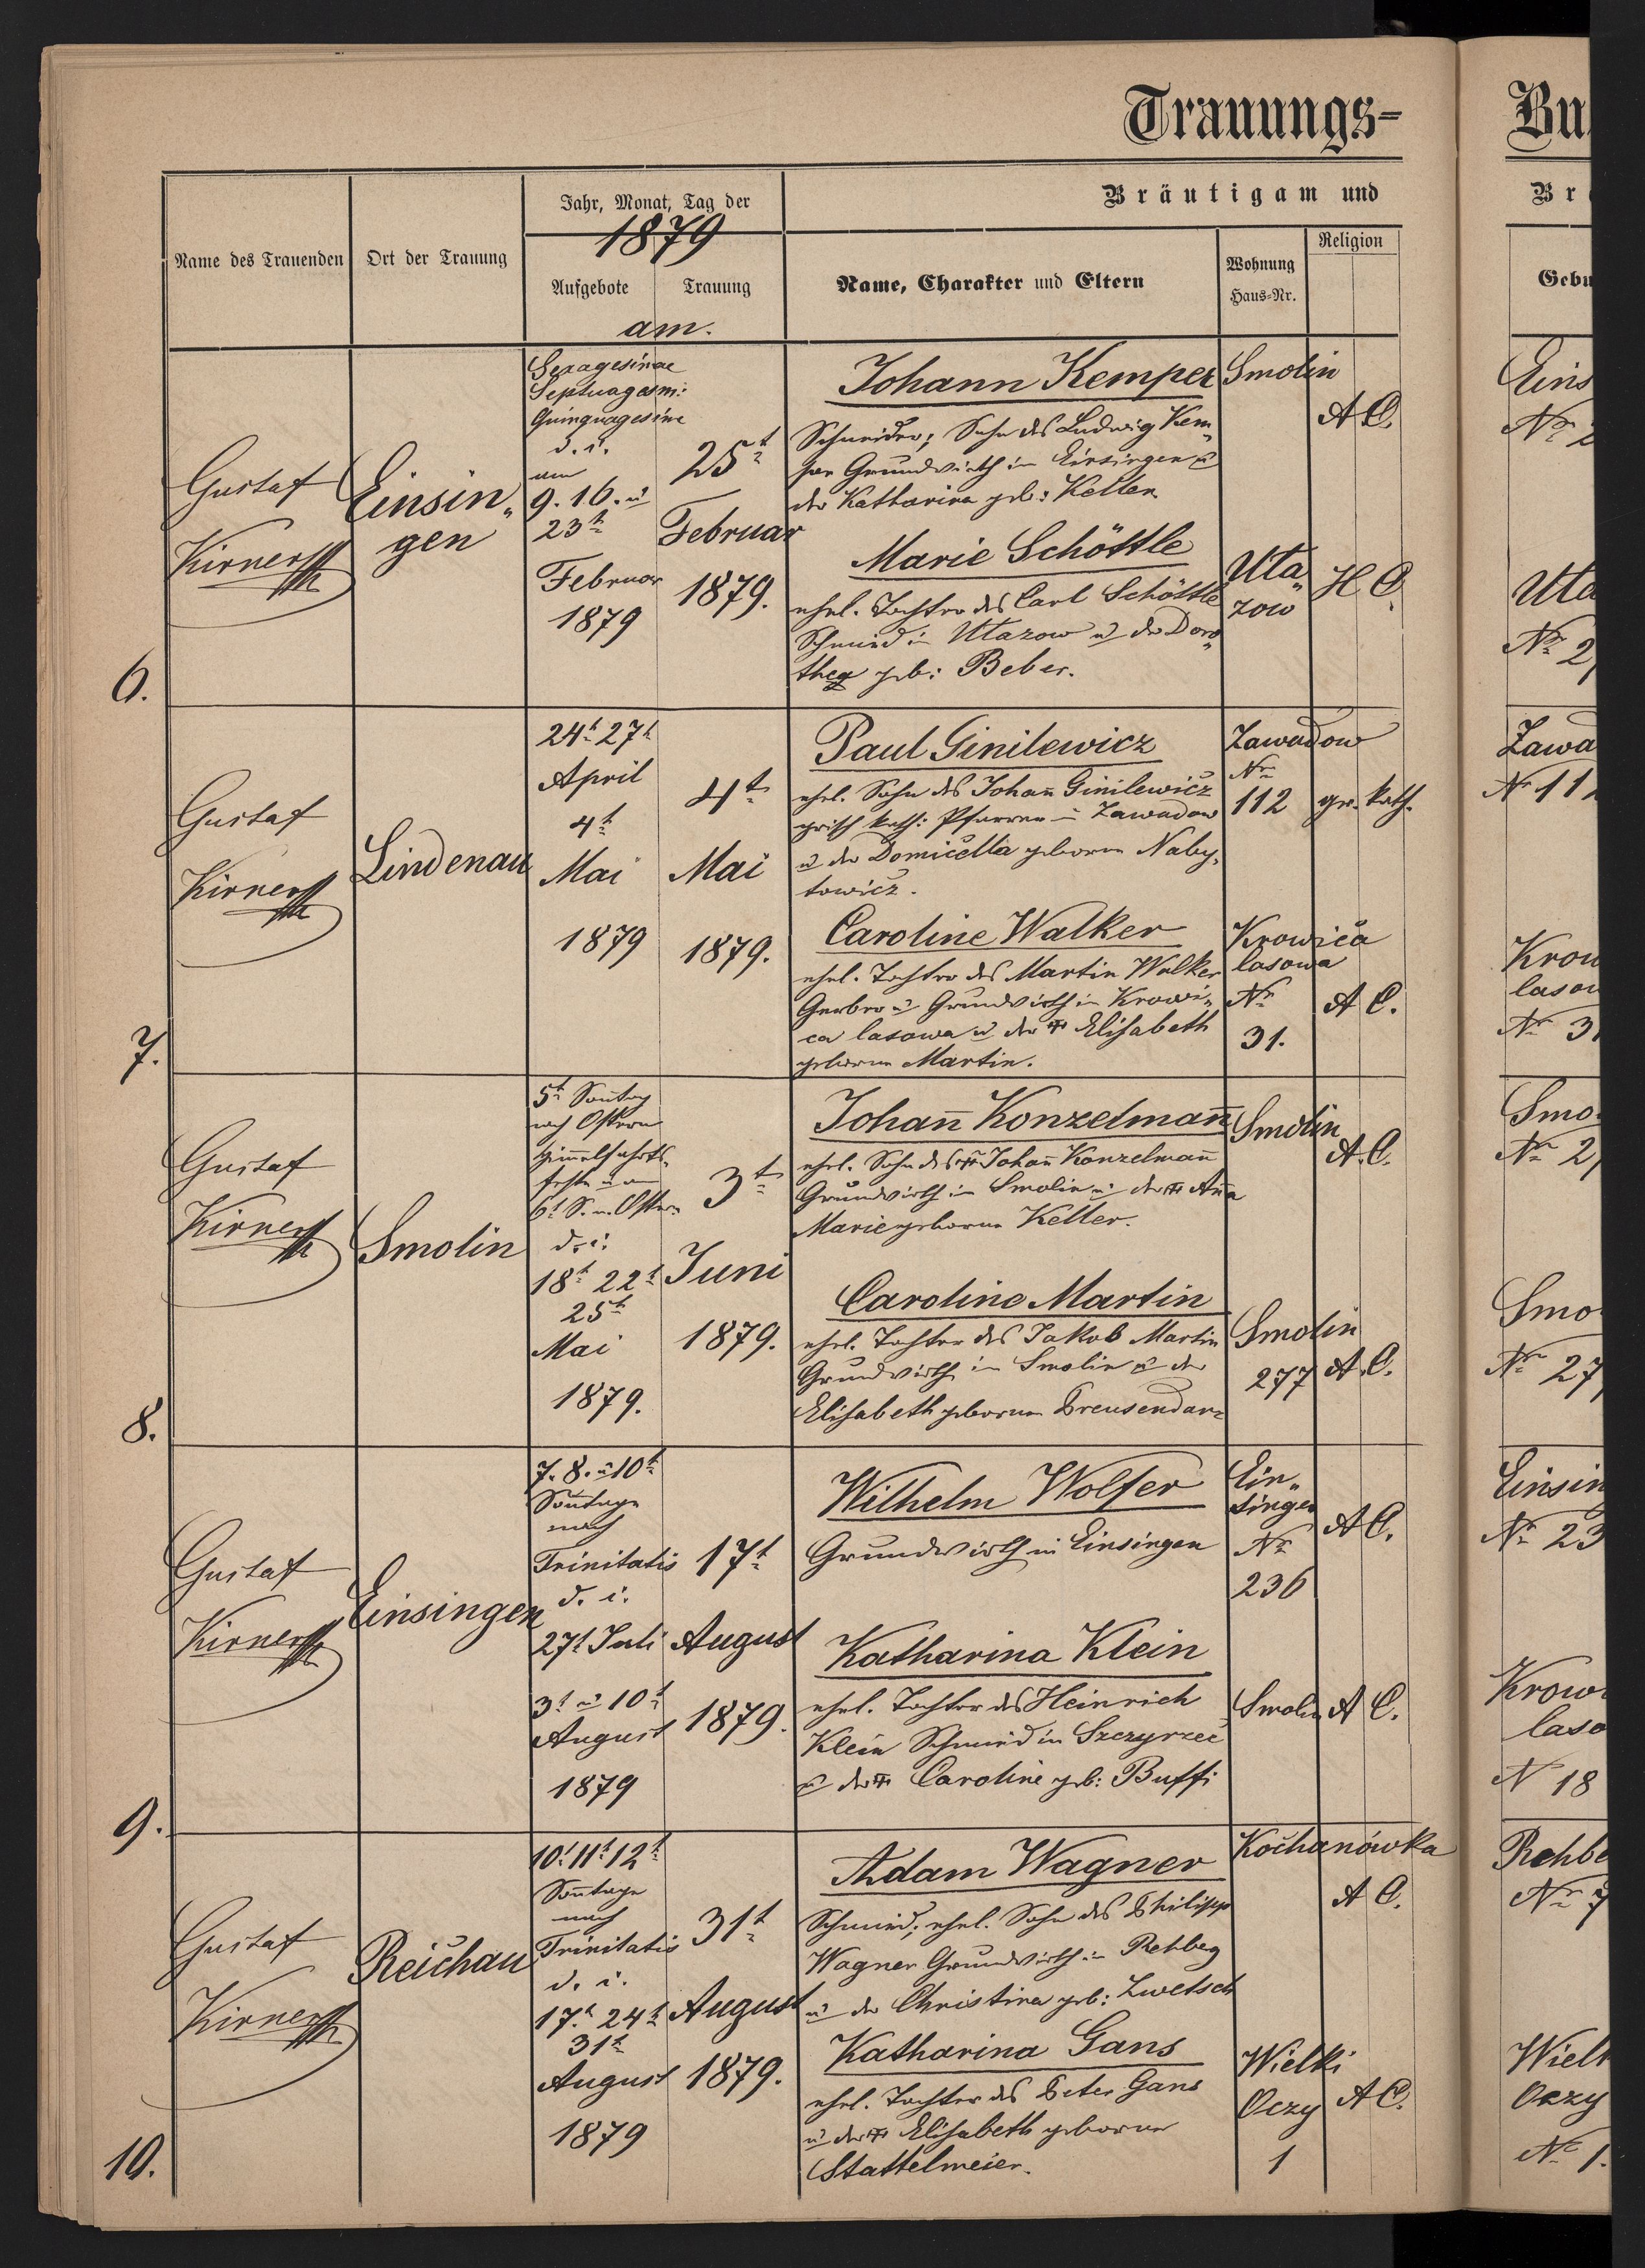 Trauungs-
Bu
Bräutigam und
Br
Name des Trauenden
Ort der Trauung
Jahr, Monat, Tag der
1879
Aufgebote
Trauung
am.
Name, Charakter und Eltern
Wohnung
Haus-Nr.
Religion
Gebu
6.
Gustaf
Kirner
Einsin„
gen
Sexagesinae
Septuagesm:
Quinquagesime
d. i.
am
9. 16. u
23t
Februar
1879
25t
Februar
1879.
Johann Kemper
Schneider; Sohn des Ludwig Kem„
per Grundwirth in Einsingen u
der Katharina geb: Keller.
Smolin
A C.
Marie Schöttle
ehel. Tochter des Carl Schöttle
Schmied in Utazow u der Doro„
thea geb: Beber.
Uta„
zow
H C.
Eins
Nr 2
Uta
Nr 2
7.
Gustaf
Kirner
Lindenau
24t 27t
April
4t
Mai
1879
4t
Mai
1879.
Paul Ginilewicz
ehel. Sohn des Johan̄ Ginilewicz
grich kath: Pfarrer in Zawadow
u der Domicella geborne Naby„
towicz.
Zawadow
Nr
112
gr. kath.
Caroline Walker
ehel. Tochter des Martin Walker
Gerber u Grundwirth in Krowi„
ca lasowa u der Elisabeth
geborne Martin.
Krowica
lasowa
Nr
31.
A C.
Zawa
Nr 11
Krow
lasow
Nr 3
8.
Gustaf
Kirner
Smolin
5t Son̄tag
nach Ostern
Him̄elfahrts„
feste u am
6t S. n. Ostern
d. i.
18t 22t
25t
Mai
1879.
3t
Juni
1879.
Johan̄ Konzelman̄
ehel. Sohn des Johan̄ Konzelman̄
Grundwirth in Smolin u der An̄a
Marie geborne Keller.
Smolin
A.C.
Caroline Martin
ehel. Tochter des Jakob Martin
Grundwirth in Smolin u der
Elisabeth geborne Preusendanz
Smolin
277
A.C.
Smo
Nr 2
Smo
Nr 27
9.
Gustaf
Kirner
Einsingen
7. 8. u 10t
Son̄tage
nach
Trinitatis
d. i.
27t Juli
3t u 10t
August
1879
17t
August
1879.
Wilhelm Wolfer
Grundwirth in Einsingen
Ein„
singen
Nr
236
A C.
Katharina Klein
ehel. Tochter des Heinrich
Klein Schmied in Szczyrzec
u der Caroline geb: Buffi
Smolin
A C.
Einsin
Nr 23
Krow
laso
N 18
10.
Gustaf
Kirner
Reichau
10t 11t 12t
Son̄tage
nach
Trinitatis
d. i.
17.t 24t
31t
August
1879
31t
August
1879.
Adam Wagner
Schmied; ehel. Sohn des Philipp
Wagner Grundwirth in Rehberg
u der Christina geb: Zwetsch
Kochanówka
A C.
Katharina Gans
ehel. Tochter des Peter Gans
u der Elisabeth geborne
Stattelmeier.
Wielki
Oczy
1
A C.
Rehbe
Nr 7
Wielk
Oczy
Nr 1.